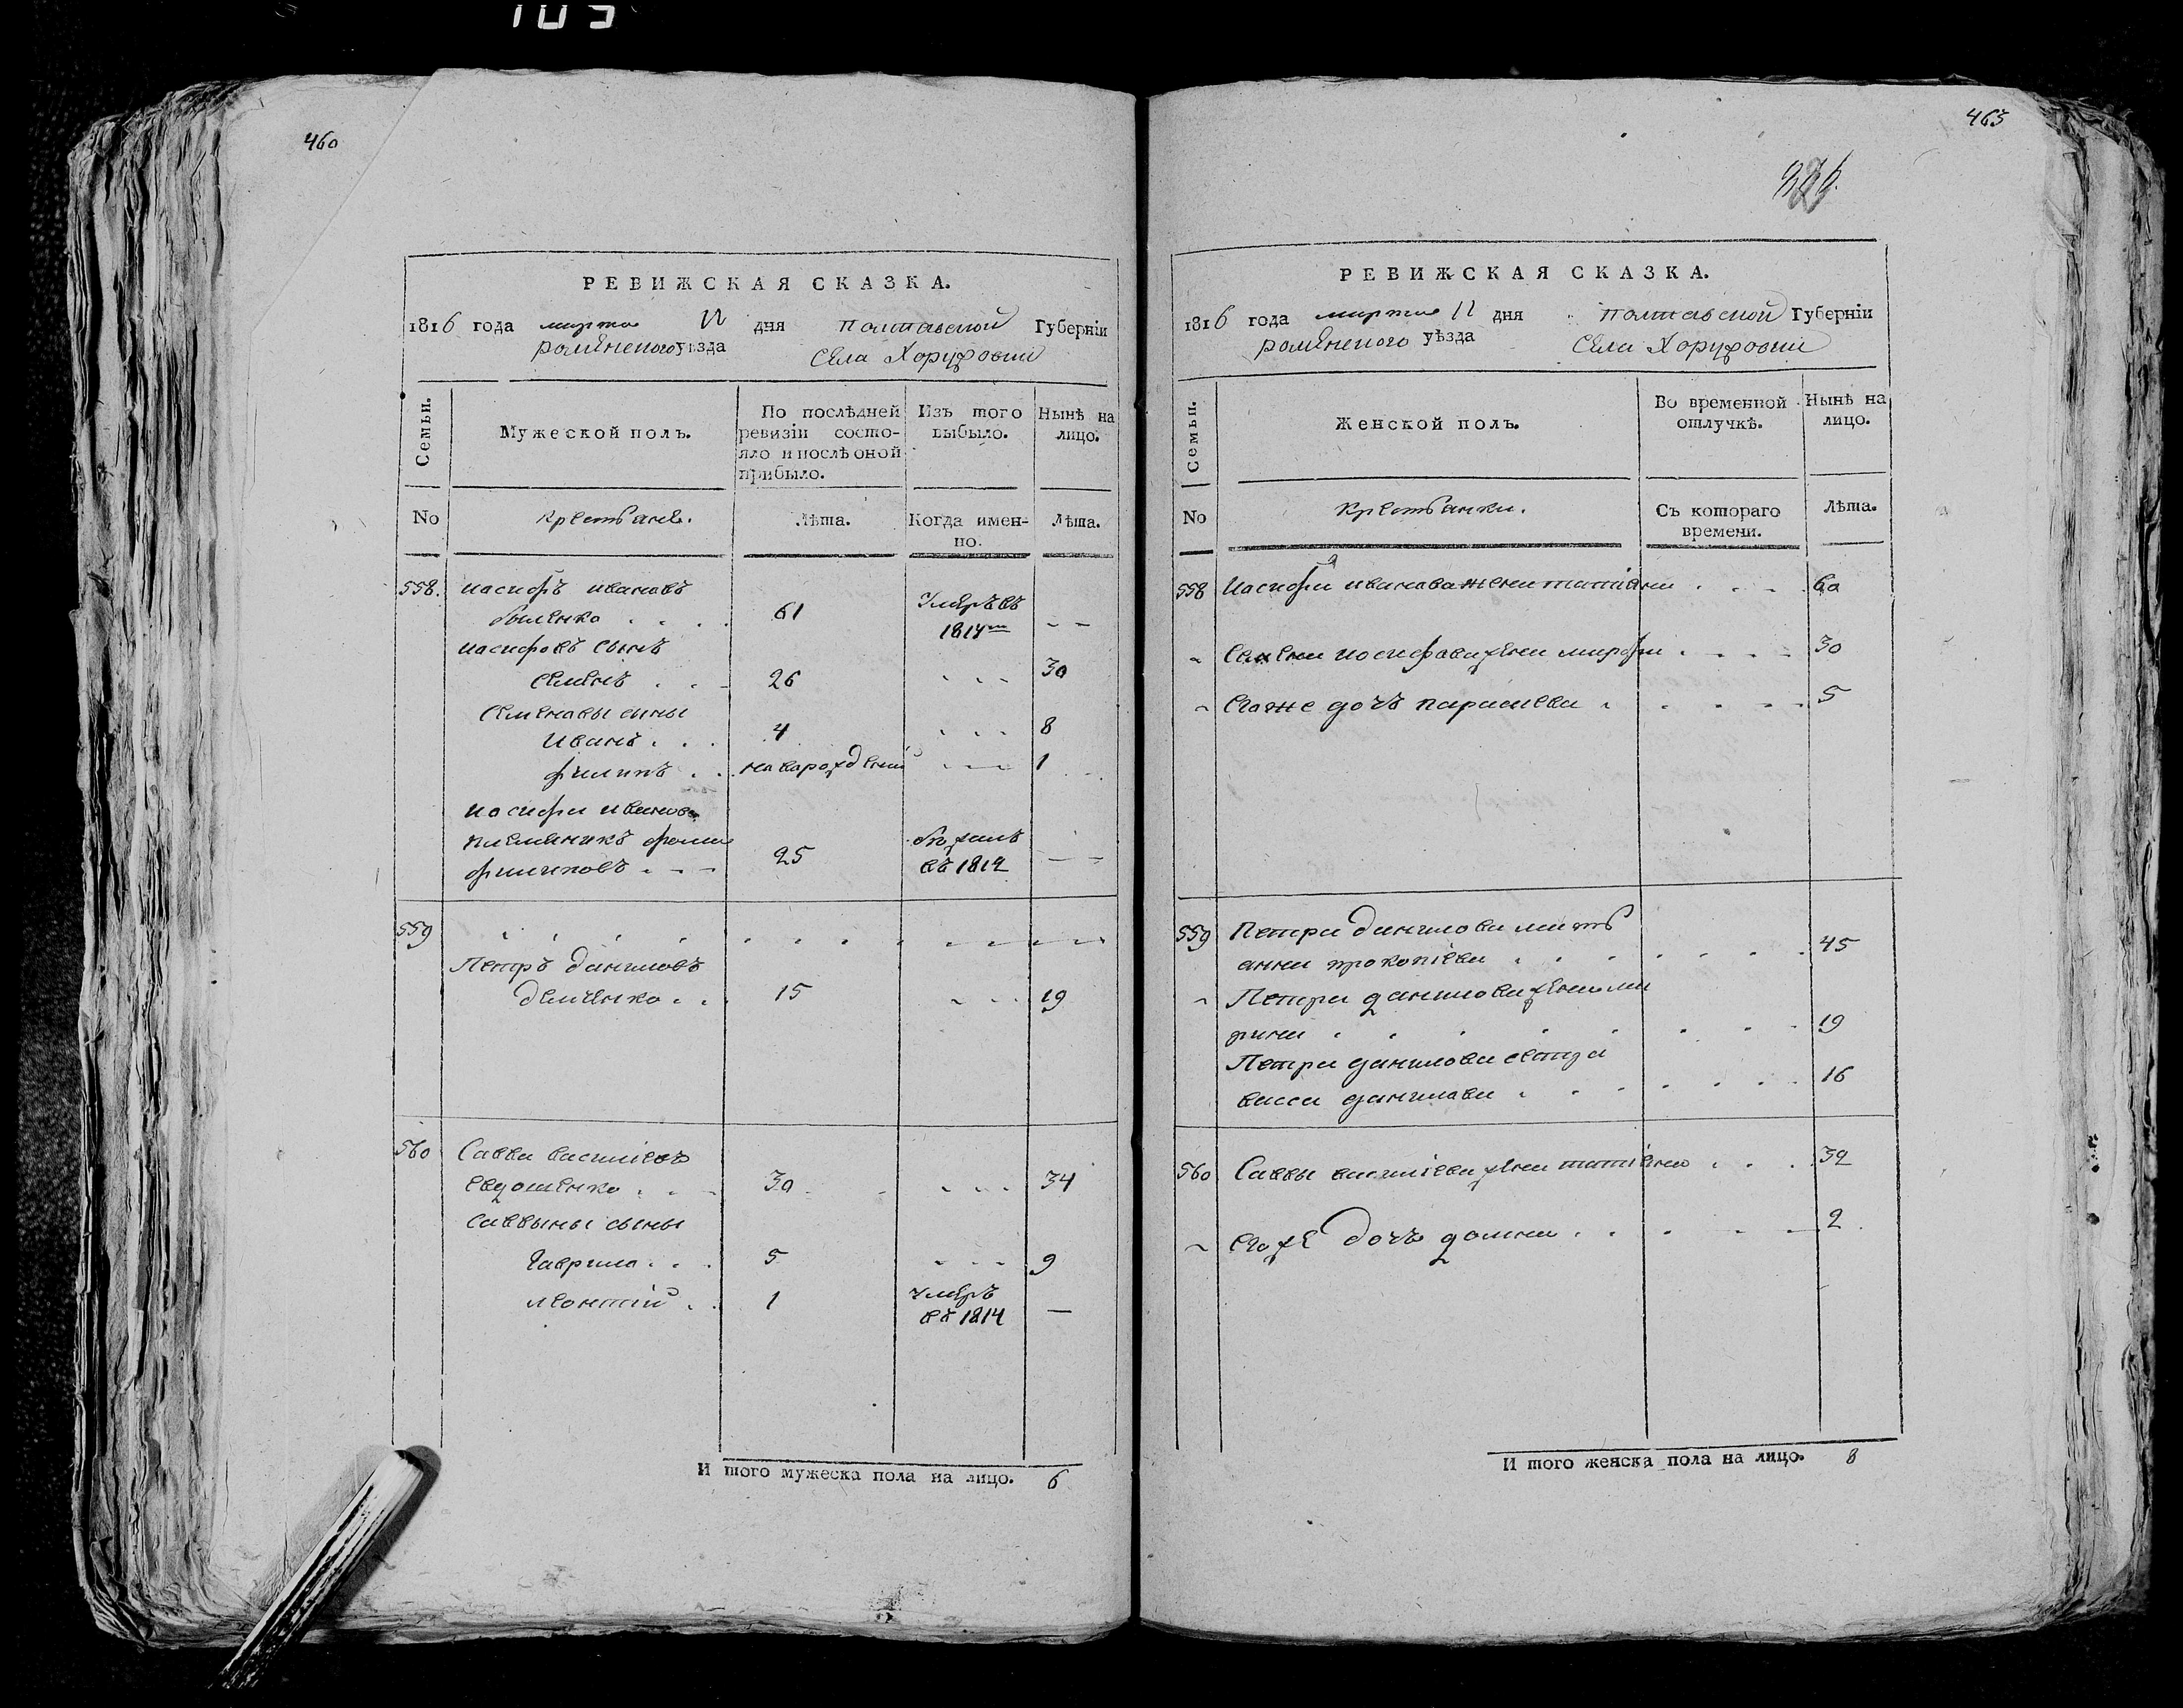 105
460
РЕВИЖСКАЯ СКАЗКА.
1816 года марта 11 дня Полтавской Губерніи
роменского уѣзда Села Хоружовки
Семьи.
Мужеской полъ.
По послѣдней ревизіи состояло и послѣ оной прибыло.
Изъ того выбыло.
Нынѣ на лицо.
No
крестьяне.
Лѣта.
Когда именно.
Лѣта.
558. иосифъ ивановъ
61 Умеръ въ
1814м - -
иосифовъ сынъ
семенъ . . - 26 . . . 30
семеновы сины
иванъ . . . 4 . . . 8
филипъ . . новорожденій - - - 1
иосифа иванова
племеникъ фома
филиповъ . - - 25 бежалъ
въ 1812 — -
559
Петръ даниловъ
демченко . . . 15 - - . 19
560 Савва василіевъ
евдошенко . . - 30 . . . 34
саввины сыны
гаврило . . . 5 - - - 9
леонтій . . 1 умеръ
въ 1814 —
И того мужеска пола на лицо. 6
463
РЕВИЖСКАЯ СКАЗКА.
1816 года марта 11 дня Полтавской Губерніи
роменского уѣзда Села Хоружовки
Семьи.
Женской полъ.
Во временной отлучкѣ.
Нынѣ на лицо.
No
крестьянки.
Съ котораго времени.
Лѣта.
558 иосифа иванова жена татіяна . . . . 60
- семена иосифова жена марфа . - - - 30
- егоже дочъ параскева . . . - - 5
559 Петра данилова мать
анна прокопіева . . . . . . . 45
- Петра данилова жена ма
рина . . . . . . . 19
Петра данилова сестра
васса данилова . . . . . . . 16
560 Саввы василіева жена татіяна . . . 32
- егоже дочъ домна . . . - - 2
И того женска пола на лицо. 8